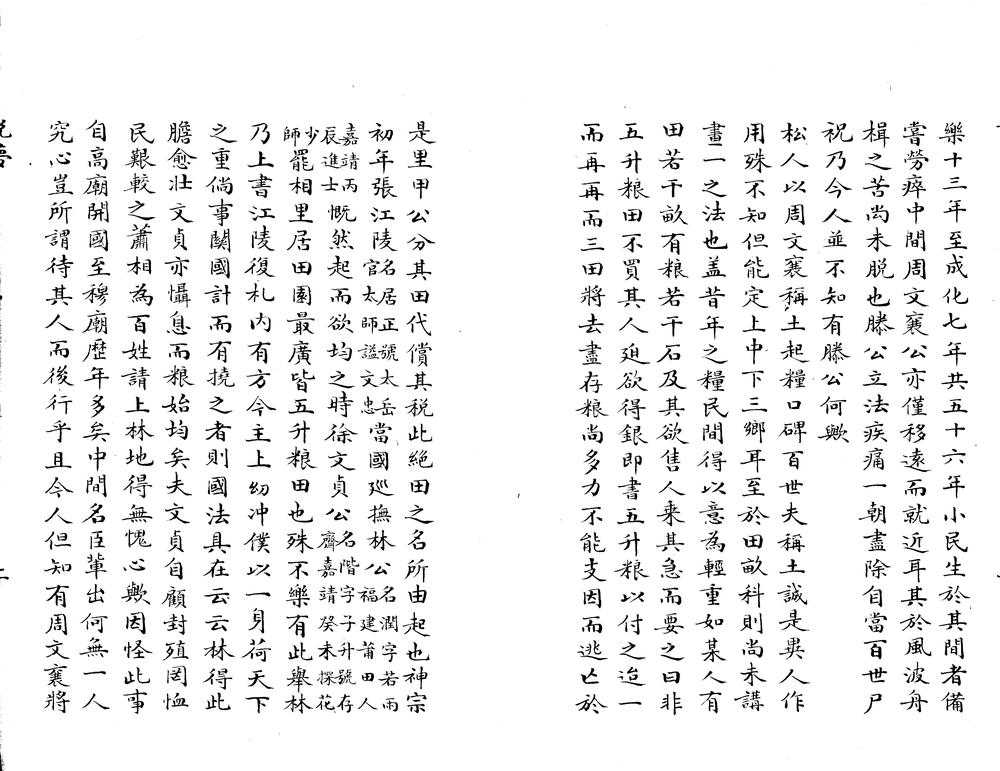 樂十三年至成化七年共五十六年小民生於其間者備
嘗勞瘁中間周文襄公亦僅移遠而就近耳其於風波舟
楫之苦尚未脱也滕公立法疾痛一朝盡除自當百世尸
祝乃今人並不知有滕公何歟
松人以周文襄稱土起糧口碑百世夫稱土誠是異人作
用殊不知但能定上中下三鄉耳至於田畝科則尚未講
畫一之法也盖昔年之糧民間得以意為輕重如某人有
田若干畝有粮若干石及其欲售人乘其急而要之曰非
五升粮田不買其人廹欲得銀即書五升粮以付之迨一
而再再而三田將去盡存粮尚多力不能支因而逃亡於
是里甲公分其田代償其税此絶田之名所由起也神宗
初年張江陵名居正號太岳官太師謚文忠當國廵撫林公名潤字若雨福建莆田人
嘉靖丙辰進士慨然起而欲均之時徐文貞公名階字子升號存齋嘉請癸未探花
少師罷相里居田園最廣皆五升粮田也殊不樂有此舉林
乃上書江陵復札内有方今主上㓜冲僕以一身荷天下
之重倘事關國計而有撓之者則國法具在云云林得此
膽愈壯文貞亦懾息而粮始均矣夫文貞自顧封殖罔恤
民艱較之蕭相為百姓請上林地得無愧心歟因怪此事
自高廟開國至穆廟歴年多矣中間名臣軰出何無一人
究心豈所謂待其人而後行乎且今人但知有周文襄將